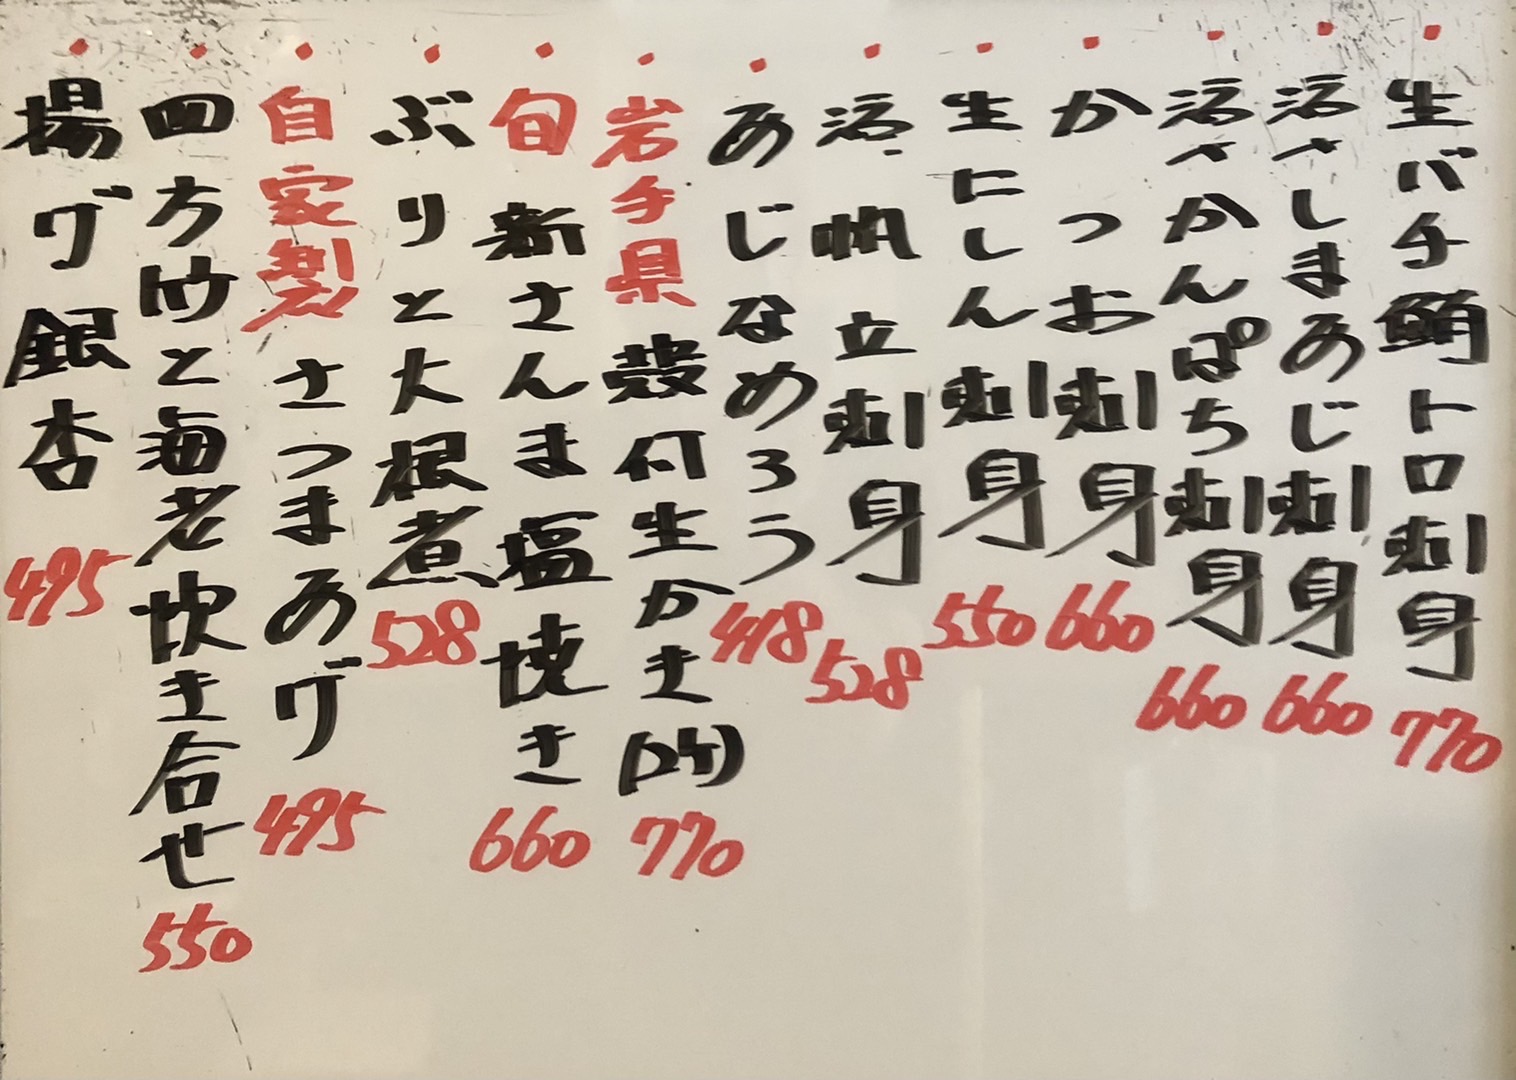 生バチ鮪トロ刺身 770
活〆しまあじ刺身 660
活〆かんぱち刺身 660
かつお刺身 660
生にしん刺身 550
活帆立刺身 528
あじなめろう 418
岩手県 殻付生かき(2ケ) 770
旬 新さんま塩焼き 660
ぶりと大根煮 528
自家製 さつまあげ 495
四方竹と海老炊き合せ 550
揚げ銀杏 495